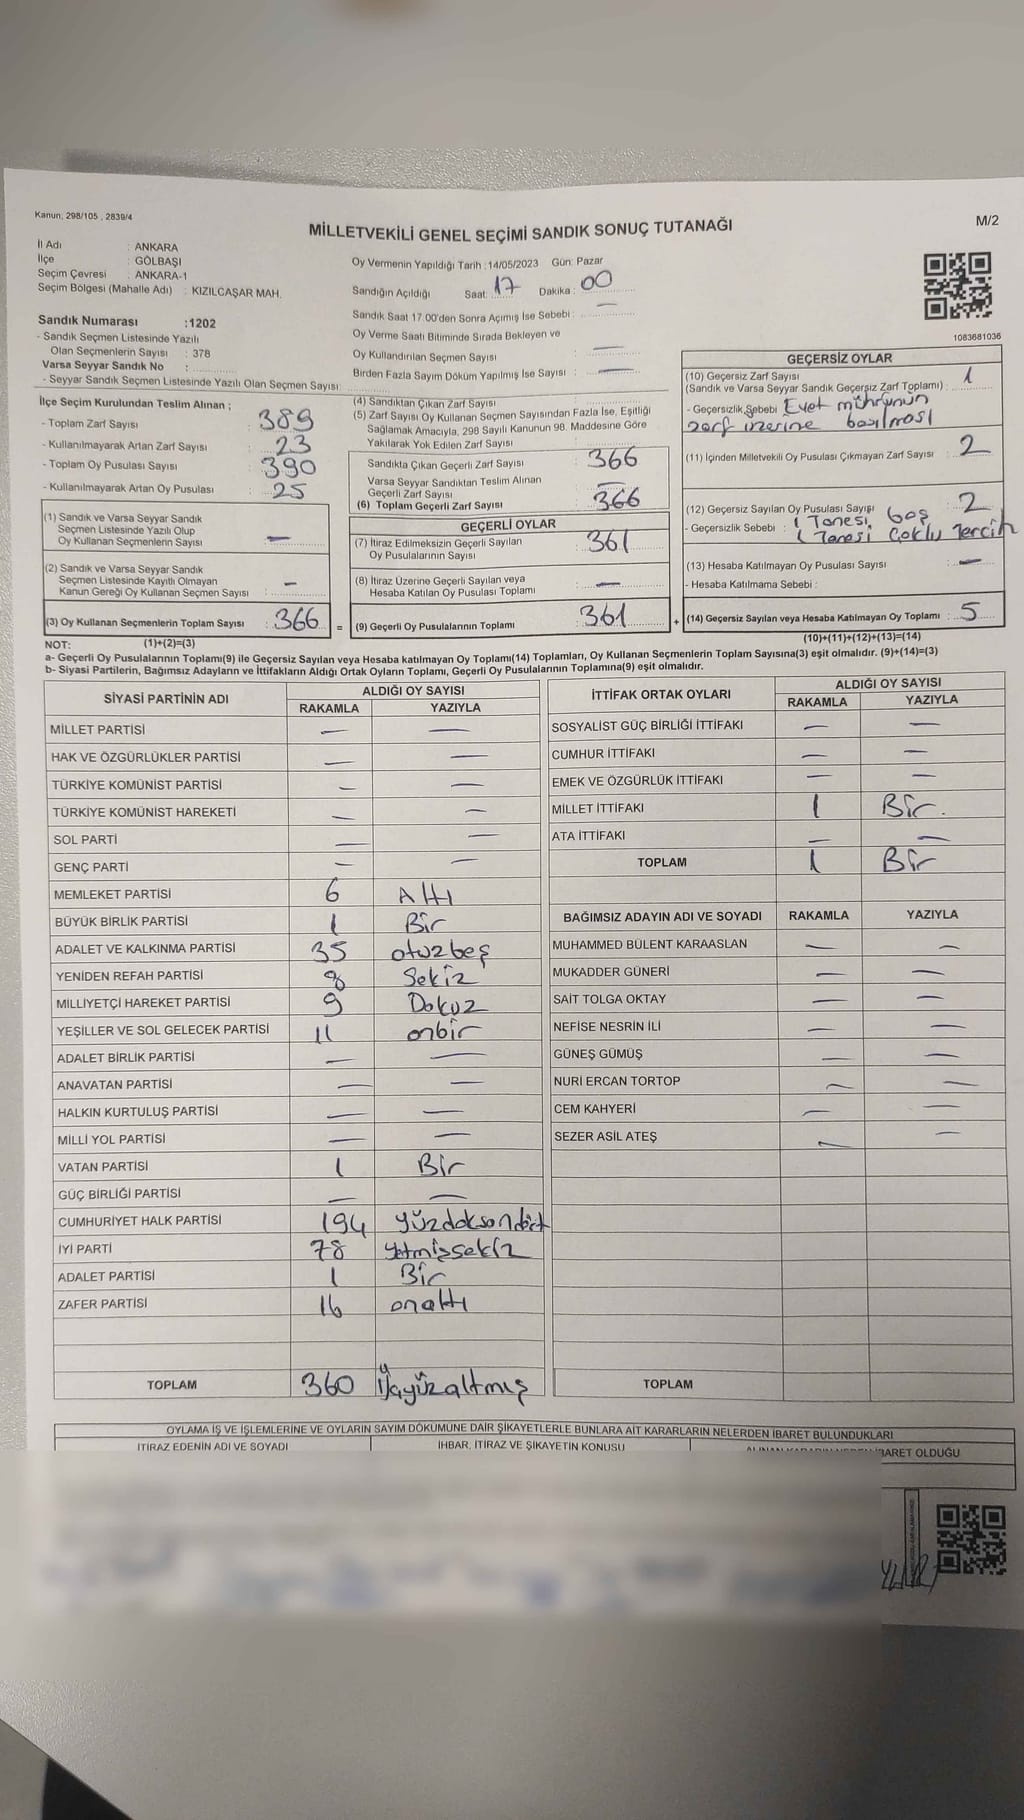 Kanun, 298/105 , 2839/4
M/2
MİLLETVEKİLİ GENEL SEÇİMİ SANDIK SONUÇ TUTANAĞI
İl Adı : ANKARA
İlçe : GÖLBAŞI
Seçim Çevresi : ANKARA-1
Seçim Bölgesi (Mahalle Adı) : KIZILCAŞAR MAH.
Oy Vermenin Yapıldığı Tarih :14/05/2023 Gün: Pazar
Sandığın Açıldığı Saat: 17 Dakika : 00
Sandık Saat 17.00'den Sonra Açımış İse Sebebi : —
Oy Verme Saati Bitiminde Sırada Bekleyen ve
Oy Kullandırılan Seçmen Sayısı : —
Birden Fazla Sayım Döküm Yapılmış İse Sayısı : —
1083681036
Sandık Numarası :1202
- Sandık Seçmen Listesinde Yazılı
Olan Seçmenlerin Sayısı : 378
Varsa Seyyar Sandık No :
- Seyyar Sandık Seçmen Listesinde Yazılı Olan Seçmen Sayısı:
İlçe Seçim Kurulundan Teslim Alınan ;
- Toplam Zarf Sayısı : 389
- Kullanılmayarak Artan Zarf Sayısı : 23
- Toplam Oy Pusulası Sayısı : 390
- Kullanılmayarak Artan Oy Pusulası : 25
(1) Sandık ve Varsa Seyyar Sandık
Seçmen Listesinde Yazılı Olup
Oy Kullanan Seçmenlerin Sayısı : —
(2) Sandık ve Varsa Seyyar Sandık
Seçmen Listesinde Kayıtlı Olmayan
Kanun Gereği Oy Kullanan Seçmen Sayısı : —
(3) Oy Kullanan Seçmenlerin Toplam Sayısı : 366
(4) Sandıktan Çıkan Zarf Sayısı :
(5) Zarf Sayısı Oy Kullanan Seçmen Sayısından Fazla İse, Eşitliği
Sağlamak Amacıyla, 298 Sayılı Kanunun 98. Maddesine Göre
Yakılarak Yok Edilen Zarf Sayısı :
Sandıkta Çıkan Geçerli Zarf Sayısı : 366
Varsa Seyyar Sandıktan Teslim Alınan
Geçerli Zarf Sayısı : —
(6) Toplam Geçerli Zarf Sayısı : 366
GEÇERLİ OYLAR
(7) İtiraz Edilmeksizin Geçerli Sayılan
Oy Pusulalarının Sayısı : 361
(8) İtiraz Üzerine Geçerli Sayılan veya
Hesaba Katılan Oy Pusulası Toplamı : —
= (9) Geçerli Oy Pusulalarının Toplamı : 361
GEÇERSİZ OYLAR
(10) Geçersiz Zarf Sayısı
(Sandık ve Varsa Seyyar Sandık Geçersiz Zarf Toplamı) : 1
- Geçersizlik Sebebi : Evet mührünün
zarf üzerine basılması
(11) İçinden Milletvekili Oy Pusulası Çıkmayan Zarf Sayısı : 2
(12) Geçersiz Sayılan Oy Pusulası Sayısı : 2
- Geçersizlik Sebebi : 1 Tanesi boş
1 Tanesi Çoklu Tercih
(13) Hesaba Katılmayan Oy Pusulası Sayısı : —
- Hesaba Katılmama Sebebi :
+ (14) Geçersiz Sayılan veya Hesaba Katılmayan Oy Toplamı : 5
NOT: (1)+(2)=(3)
(10)+(11)+(12)+(13)=(14)
a- Geçerli Oy Pusulalarının Toplamı(9) ile Geçersiz Sayılan veya Hesaba katılmayan Oy Toplamı(14) Toplamları, Oy Kullanan Seçmenlerin Toplam Sayısına(3) eşit olmalıdır. (9)+(14)=(3)
b- Siyasi Partilerin, Bağımsız Adayların ve İttifakların Aldığı Ortak Oyların Toplamı, Geçerli Oy Pusulalarının Toplamına(9) eşit olmalıdır.
SİYASİ PARTİNİN ADI ALDIĞI OY SAYISI
RAKAMLA YAZIYLA
MİLLET PARTİSİ — —
HAK VE ÖZGÜRLÜKLER PARTİSİ — —
TÜRKİYE KOMÜNİST PARTİSİ — —
TÜRKİYE KOMÜNİST HAREKETİ — —
SOL PARTİ — —
GENÇ PARTİ — —
MEMLEKET PARTİSİ 6 Altı
BÜYÜK BİRLİK PARTİSİ 1 Bir
ADALET VE KALKINMA PARTİSİ 35 otuzbeş
YENİDEN REFAH PARTİSİ 8 Sekiz
MİLLİYETÇİ HAREKET PARTİSİ 9 Dokuz
YEŞİLLER VE SOL GELECEK PARTİSİ 11 onbir
ADALET BİRLİK PARTİSİ — —
ANAVATAN PARTİSİ — —
HALKIN KURTULUŞ PARTİSİ — —
MİLLİ YOL PARTİSİ — —
VATAN PARTİSİ 1 Bir
GÜÇ BİRLİĞİ PARTİSİ — —
CUMHURİYET HALK PARTİSİ 194 yüzdoksandört
İYİ PARTİ 78 yetmişsekiz
ADALET PARTİSİ 1 Bir
ZAFER PARTİSİ 16 onaltı
TOPLAM 360 Üçyüzaltmış
İTTİFAK ORTAK OYLARI ALDIĞI OY SAYISI
RAKAMLA YAZIYLA
SOSYALİST GÜÇ BİRLİĞİ İTTİFAKI — —
CUMHUR İTTİFAKI — —
EMEK VE ÖZGÜRLÜK İTTİFAKI — —
MİLLET İTTİFAKI 1 Bir.
ATA İTTİFAKI — —
TOPLAM 1 Bir
BAĞIMSIZ ADAYIN ADI VE SOYADI RAKAMLA YAZIYLA
MUHAMMED BÜLENT KARAASLAN — —
MUKADDER GÜNERİ — —
SAİT TOLGA OKTAY — —
NEFİSE NESRİN İLİ — —
GÜNEŞ GÜMÜŞ — —
NURİ ERCAN TORTOP — —
CEM KAHYERİ — —
SEZER ASİL ATEŞ — —
TOPLAM
OYLAMA İŞ VE İŞLEMLERİNE VE OYLARIN SAYIM DÖKÜMÜNE DAİR ŞİKAYETLERLE BUNLARA AİT KARARLARIN NELERDEN İBARET BULUNDUKLARI
İTİRAZ EDENİN ADI VE SOYADI İHBAR, İTİRAZ VE ŞİKAYETİN KONUSU İBARET OLDUĞU